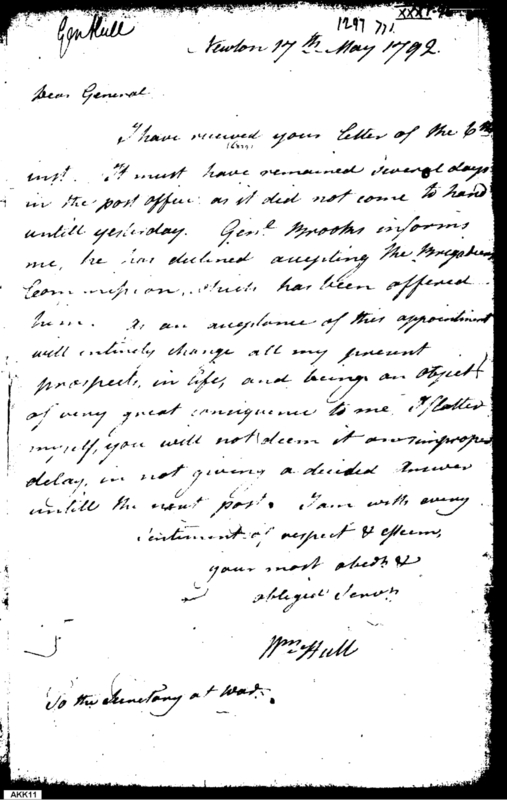 Gen Hull
1297 771
XXXI-
Newton 17th May 1792.
Dear General
I have received your letter of the 6th
inst. It must have remained several days
in the post office as it did not come to hand
untill yesterday. Genl. Brooks informs
me, he has declined accepting the Brigadiers
Commission, which has been offered
him. As an acceptance of this appointment
will entirely change all my present
prospects, in life, and being an object
of very great consequence to me I flatter
myself, you will not deem it an improper
delay, in not giving a decided Answer
untill the next post. I am with every
sentiment of respect & esteem,
your most obedt &
obliged Servt
Wm Hull
To the Secretary at War.
AKK11